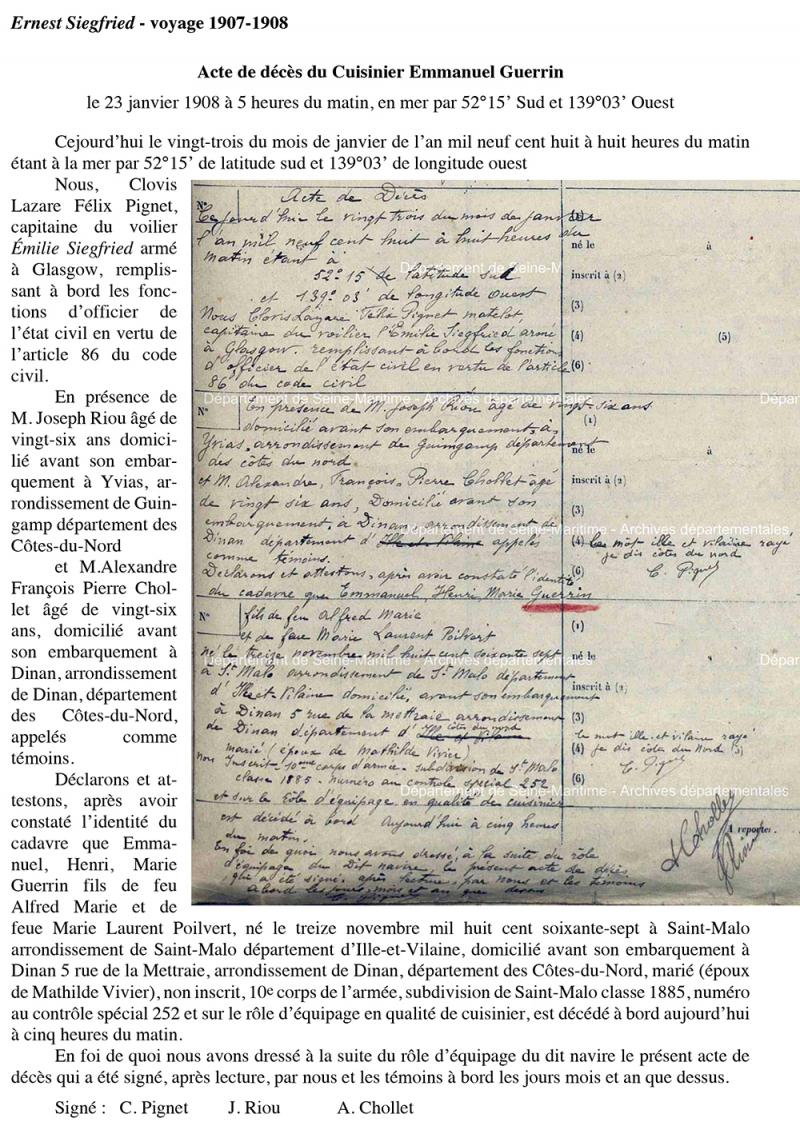 Ernest Siegfried - voyage 1907-1908
Acte de décès du Cuisinier Emmanuel Guerrin
le 23 janvier 1908 à 5 heures du matin, en mer par 52°15’ Sud et 139°03’ Ouest
Cejourd’hui le vingt-trois du mois de janvier de l’an mil neuf cent huit à huit heures du matin
étant à la mer par 52°15’ de latitude sud et 139°03’ de longitude ouest
Nous, Clovis
Lazare Félix Pignet,
capitaine du voilier
Émilie Siegfried armé
à Glasgow, remplis-
sant à bord les fonc-
tions d’officier de
l’état civil en vertu de
l’article 86 du code
civil.
En présence de
M. Joseph Riou âgé de
vingt-six ans domici-
lié avant son embar-
quement à Yvias, ar-
rondissement de Guin-
gamp département des
Côtes-du-Nord
et M.Alexandre
François Pierre Chol-
let âgé de vingt-six
ans, domicilié avant
son embarquement à
Dinan, arrondissement
de Dinan, département
des Côtes-du-Nord,
appelés comme
témoins.
Déclarons et at-
testons, après avoir
constaté l’identité du
cadavre que Emma-
nuel, Henri, Marie
Guerrin fils de feu
Alfred Marie et de
feue Marie Laurent Poilvert, né le treize novembre mil huit cent soixante-sept à Saint-Malo
arrondissement de Saint-Malo département d’Ille-et-Vilaine, domicilié avant son embarquement à
Dinan 5 rue de la Mettraie, arrondissement de Dinan, département des Côtes-du-Nord, marié (époux
de Mathilde Vivier), non inscrit, 10e corps de l’armée, subdivision de Saint-Malo classe 1885, numéro
au contrôle spécial 252 et sur le rôle d’équipage en qualité de cuisinier, est décédé à bord aujourd’hui
à cinq heures du matin.
En foi de quoi nous avons dressé à la suite du rôle d’équipage du dit navire le présent acte de
décès qui a été signé, après lecture, par nous et les témoins à bord les jours mois et an que dessus.
Signé : C. Pignet J. Riou A. Chollet
Acte de Décès
Nº
Cejourd'hui le vingt trois du mois de janvier
l'an mil neuf cent huit à huit heures du
matin étant à
52º 15 de latitude sud
et 139º 03' de longitude ouest
Nous Clovis Lazare Félix Pignet matelot
capitaine du voilier l'Emilie Siegfried armé
à Glasgow. remplissant à bord les fonctions
d'officier de l'état civil en vertu de l'article
86 du code civil
né le à
inscrit à (2)
(3)
(4) (5)
(6)
Nº
En présence de M. Joseph Riou âgé de vingt six ans
domicilié avant son embarquement, à
Yvias, arrondissement de Guingamp département
des côtes du nord
et M. Alexandre, François, Pierre Chollet âgé
de vingt six ans, Domicilié avant son
embarquement, à Dinan arrondissement de
Dinan département d'Ille et Vilaine appelés
comme témoins.
Déclarons et attestons, après avoir constaté l'identité
du cadavre que Emmanuel, Henri, Marie Guerrin
(1)
né le à
inscrit à (2)
(3)
(4) Les mot ille et vilaine rayé
je dis cotes du nord
C. Pignet
(6)
Nº
fils de feu Alfred Marie
et de feue Marie Laurent Poilvert
né le treize novembre mil huit cent soixante sept
à St Malo arrondissement de St Malo département
d'Ille et Vilaine domicilié, avant son embarquement
à Dinan 5 rue de la mettraie arrondissement
côtes du nord
de Dinan département d'Ille et Vilaine
marié (époux de Mathilde Vivier)
non Inscrit 10ème corps d'armée. subdivision de St Malo
classe 1885. numéro au controle spécial 252
et sur le Rôle d'équipage en qualité de cuisinier
est décédé à bord aujourd'hui à cinq heures
du matin.
En foi de quoi nous avons dressé, à la suite du rôle
d'équipage du Dit navire, le présent acte de décès
qui a été signé, après lecture, par nous et les témoins
à bord les jours, mois et an que dessus
(1)
né le
inscrit à (2)
(3)
le mot ille et vilaine rayé
(4) je dis côtes du Nord (5)
C. Pignet
(6)
A reporter.
A Chollet
J Riou
Département de Seine-M
Département de Seine-Maritime - Archives départementales
Départ
Département de Seine-Maritime - Archives départementales,
Département de Seine-Maritime - Archives départementales
Dépar
Département de Seine-Maritime - Archives départementales